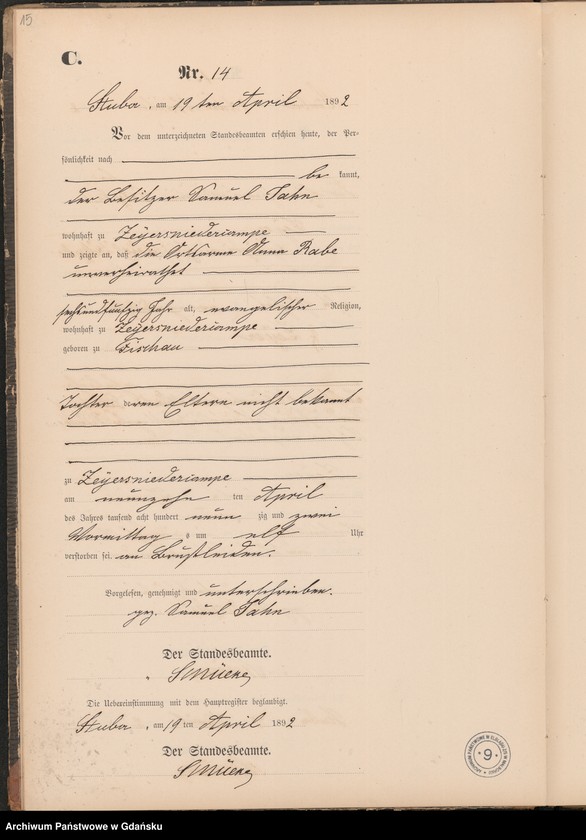 15
C.
Nr. 14
Stuba, am 19 ten April 1892
Vor dem unterzeichneten Standesbeamten erschien heute, der Per-
sönlichkeit nach
be kannt,
der Besitzer Samuel Jahn
wohnhaft zu Zeyersniedercampe
und zeigte an, daß die Ortsarme Anna Rabe
unverheirathet
sechsundfünfzig Jahr alt, evangelischer Religion,
wohnhaft zu Zeyersniedercampe
geboren zu Fischau
Tochter deren Eltern nicht bekannt
zu Zeyersniedercampe
am neunzehn ten April
des Jahres tausend acht hundert neun zig und zwei
Vormittag s um elf Uhr
verstorben sei. an Brustleiden.
Vorgelesen, genehmigt und unterschrieben.
gez. Samuel Jahn
Der Standesbeamte.
Die Uebereinstimmung mit dem Hauptregister beglaubigt.
Stuba, am 19 ten April 1892
Der Standesbeamte.
9
Archiwum Państwowe w Gdańsku